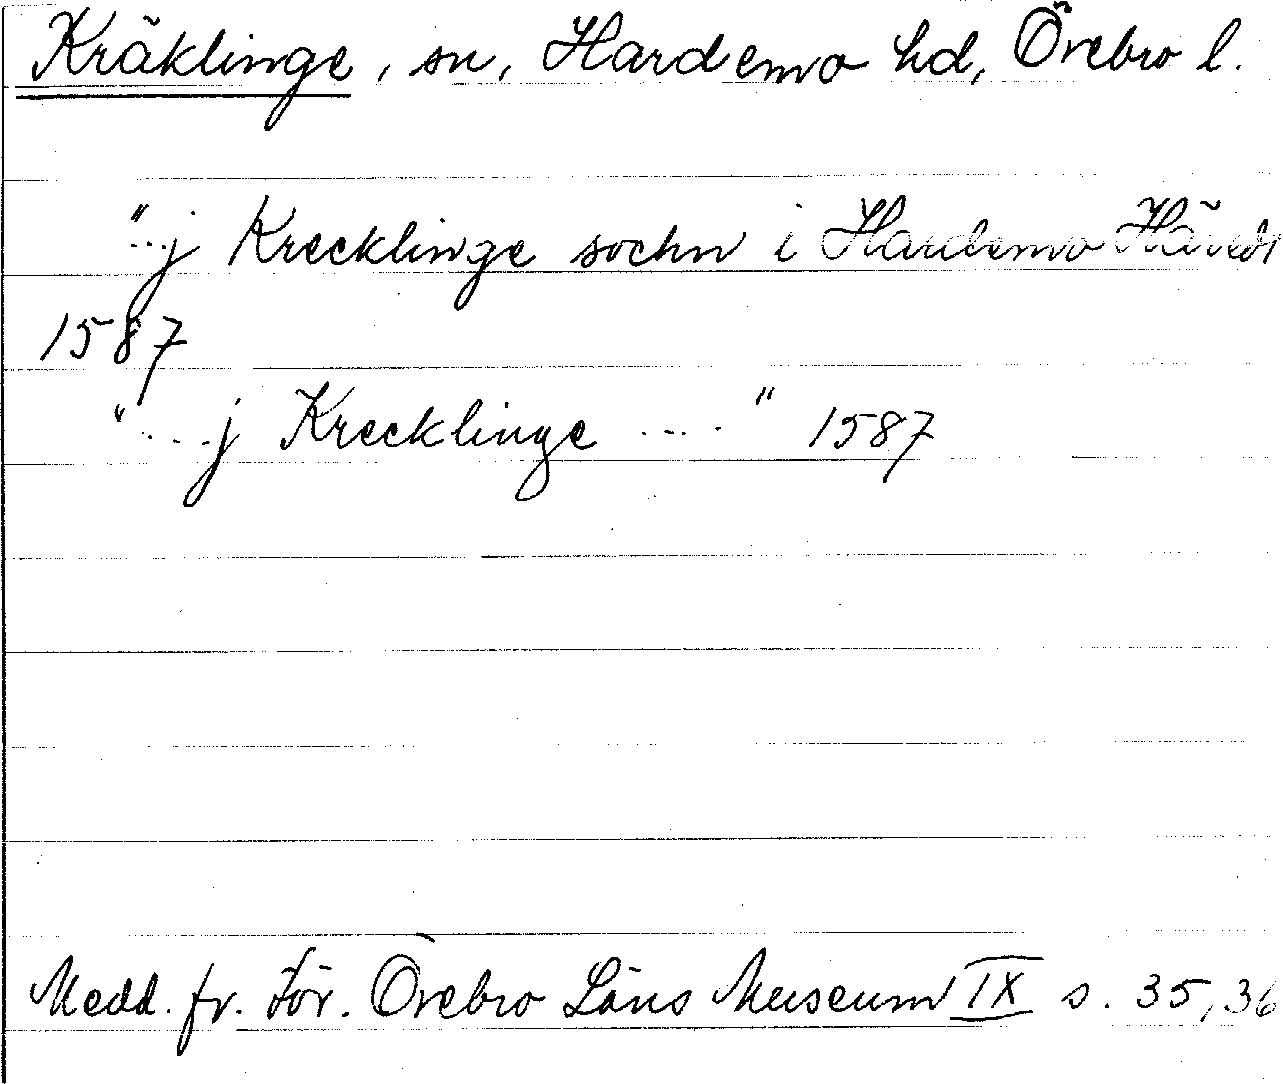 Kräklinge, sn, Hardemo hd, Örebro l.
"...j Krecklinge sochn i Hardemo
1587
"....j Krecklinge ...." 1587
Medd. fr. För. Örebro Läns Museum IX s. 35, 36